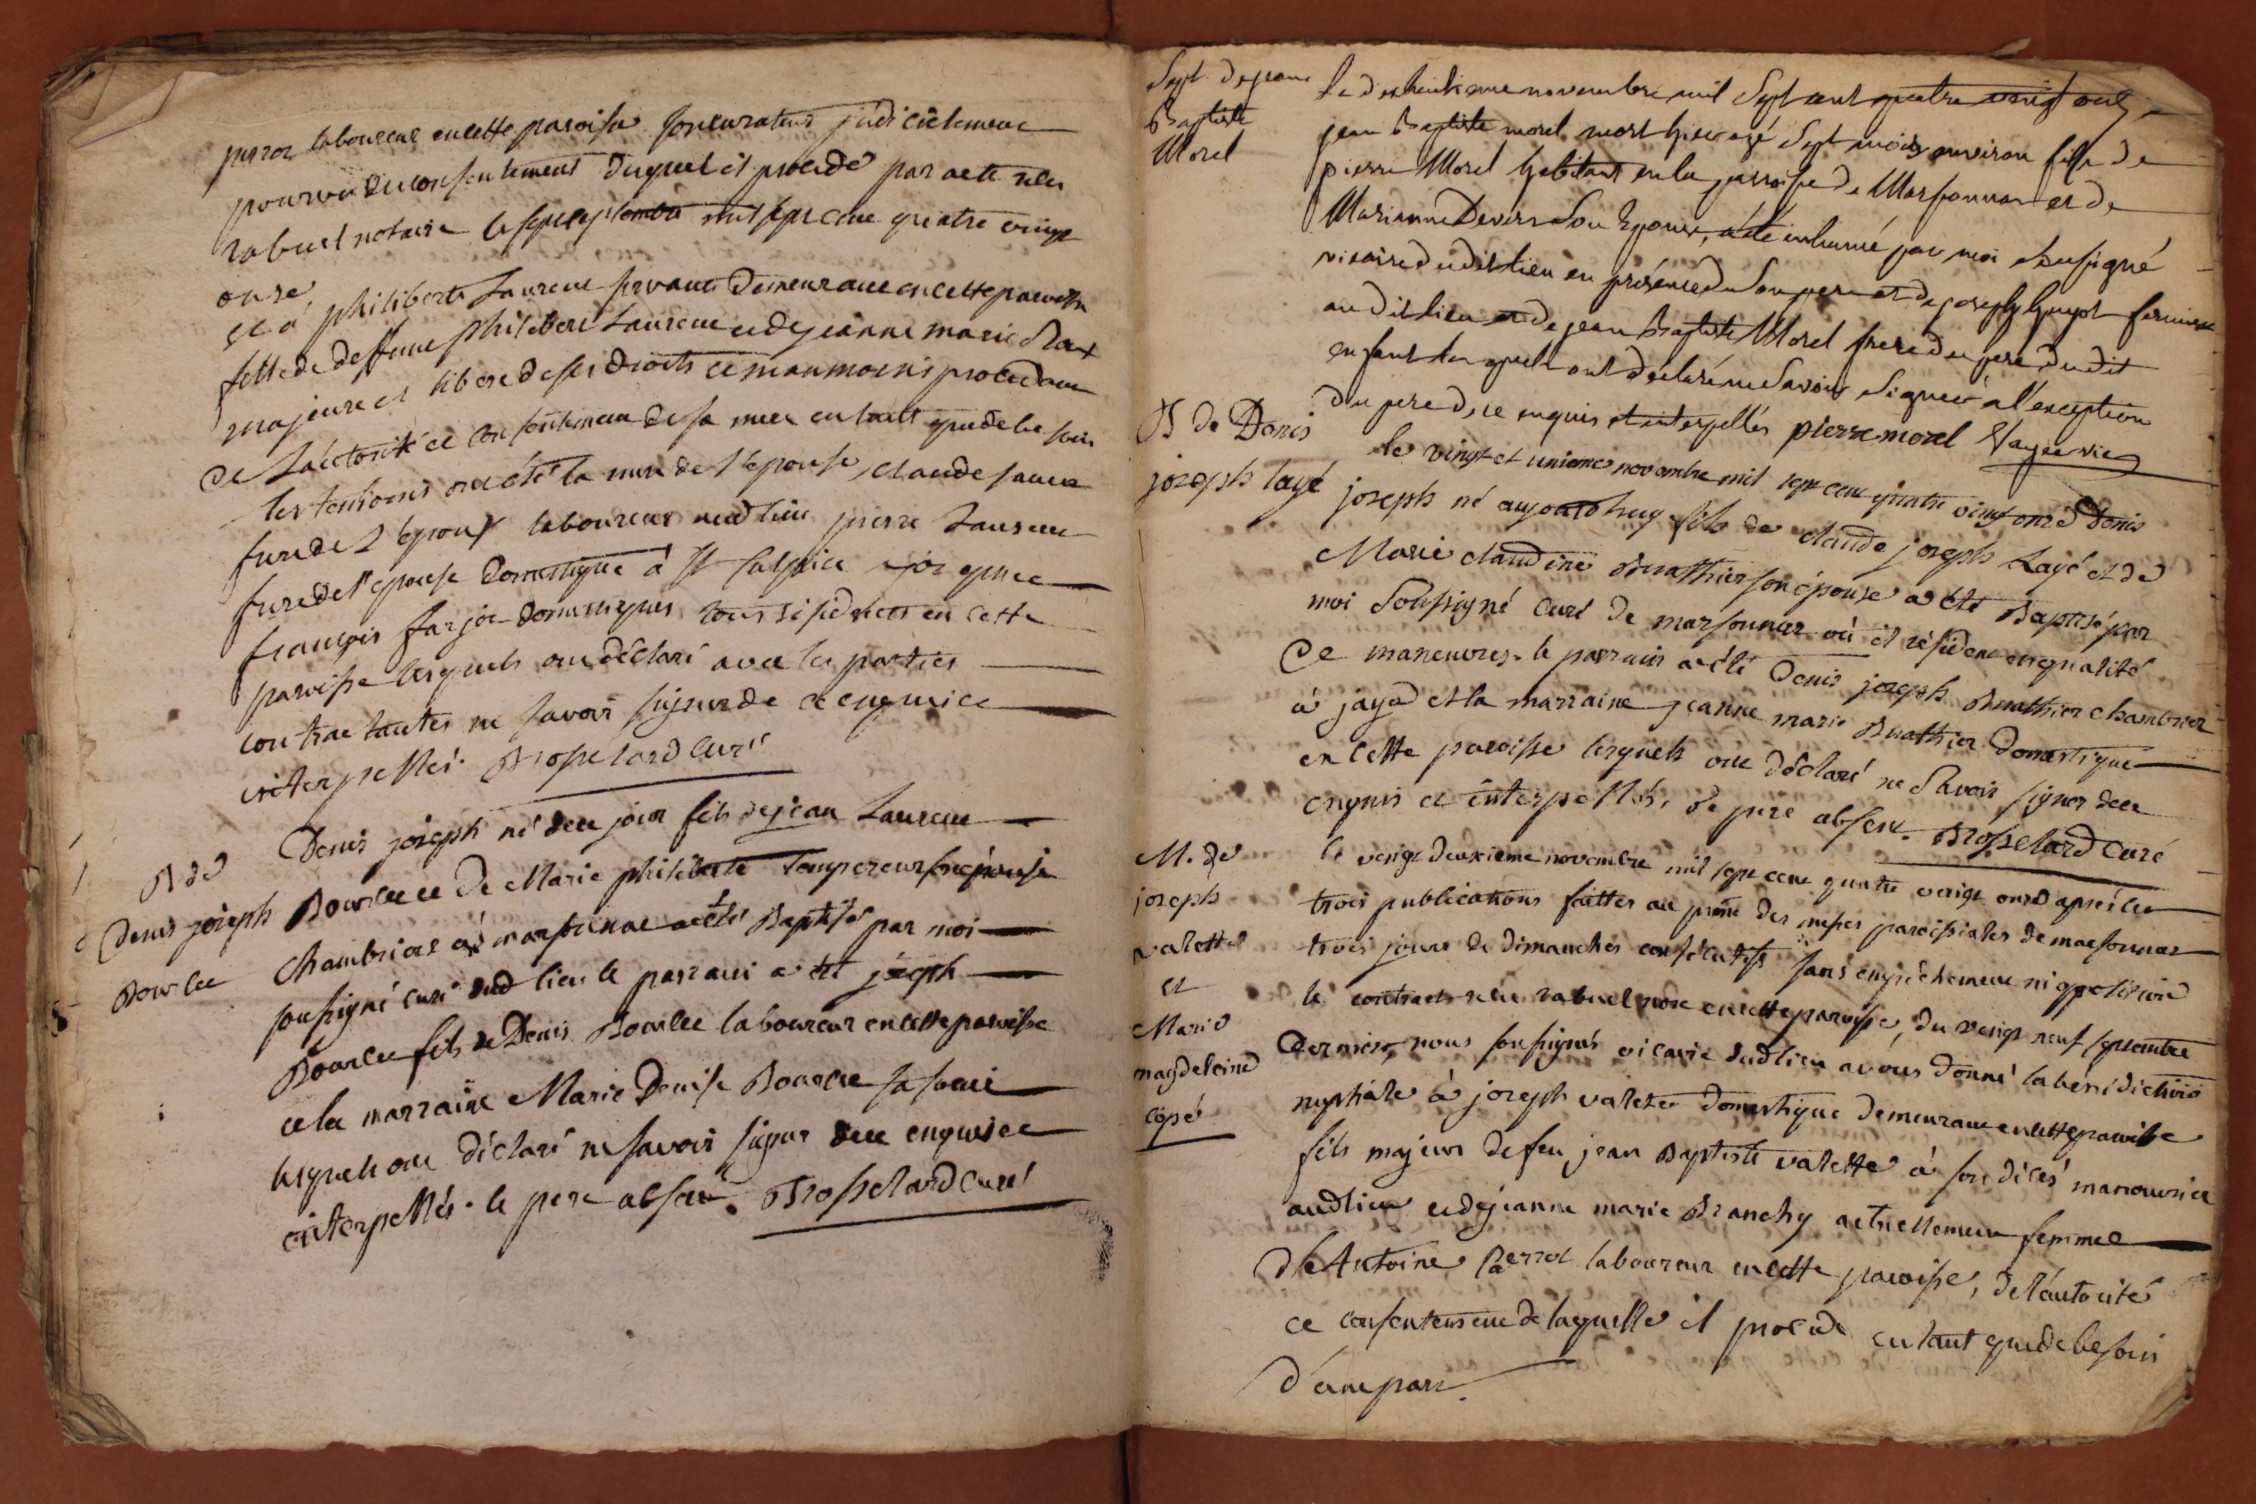 perroz laboureur en cette paroisse son curateur judicielement
pourvu du consentement duquel il procede par acte reçu
rabuel notaire le sept septembre mil sept cent quatre vingt
onze,
et a philiberte Laurent servante demeurante en cette paroisse
fille de deffunt philibert Laurent et de jeanne marie
majeure et libere de ses droits ce neanmoins procedant
de l'autorité et consentement de sa mere en tant que de besoin
les temoins ont été la mere de l'epouse, claude
frere de l'epoux laboureur aud lieu pierre Laurent
frere de l'epouse domestique à st sulpice
françois farjot domestiques tous residents en cette
paroisse lesquels ont déclaré avec les parties
contractantes ne savoir signer de ce enquis et
interpellés. Brosselard curé
B de
Denis joseph
Bourlee
Denis joseph né dece jour fils de jean Laurent
Bourlee et de Marie philiberte Lempereur son épouse
Chambrier à marsonnas a été Baptisé par moi
soussigné curé dud lieu le parrain a été joseph
Bourlee fils de Denis Bourlee laboureur en cette paroisse
et la marraine Marie Denise Bourlee sa soeur
lesquels ont déclaré ne savoir signer dece enquis et
interpellés. le pere absent. Brosselard curé
Sept. de jean
Baptiste
Morel
Le dixhuitieme novembre mil Sept cent quatre vingt onze,
jean Baptiste morel mort hier agé Sept mois environ fils de
pierre Morel habitant en la parroisse de Marsonnas et de
Marianne Devers Son Epouse, a été inhumé par moi Soussigné
vicaire dudit lieu en présence du Son pere et de joseph Guyot fermier
au dit lieu et de jean Baptiste Morel frere du pere du dit
enfant lesquels ont déclaré ne Savoir Signer à l'exception
du pere de ce enquis et interpellés pierre morel
B de Denis
joseph layé
le vingt et unieme novembre mil sept cent quatre vingt onze Denis
joseph né aujourdhuy fils de claude joseph Layé et de
Marie claudine Buathier son épouse a été Baptisé par
moi Soussigné curé de marsonnas où il résident en qualité
de maneuvres. le parrain a été Denis joseph Buathier chambrier
à jayad et la marraine jeanne marie Buathier domestique
en cette paroisse lesquels ont déclaré ne Savoir signer dece
enquis et interpellés, le pere absent. Brosselard curé
M. de
joseph
valette
et
Marie
magdeleine
copé
le vingt deuxieme novembre mil sept cent quatre vingt onze après les
trois publications faittes au prône des messes paroissiales de marsonnas
trois jours de dimanches consécutifs sans empêchement ni opposition
le contract reçu rabuel nore en cette paroisse, du vingt neuf septembre
dernier, nous soussignés vicaire dudlieu avons donné la bénédiction
nuptiale à joseph valette domestique demeurant en cette paroisse
fils majeur de feu jean Baptiste valette à son décés manouvrier
audlieu et de jeanne marie Branchy actuellement femme
d'Antoine Perrot laboureur en cette paroisse, de l'autorité
et consentement de laquelle il procede en tant que de besoin
d'une part.